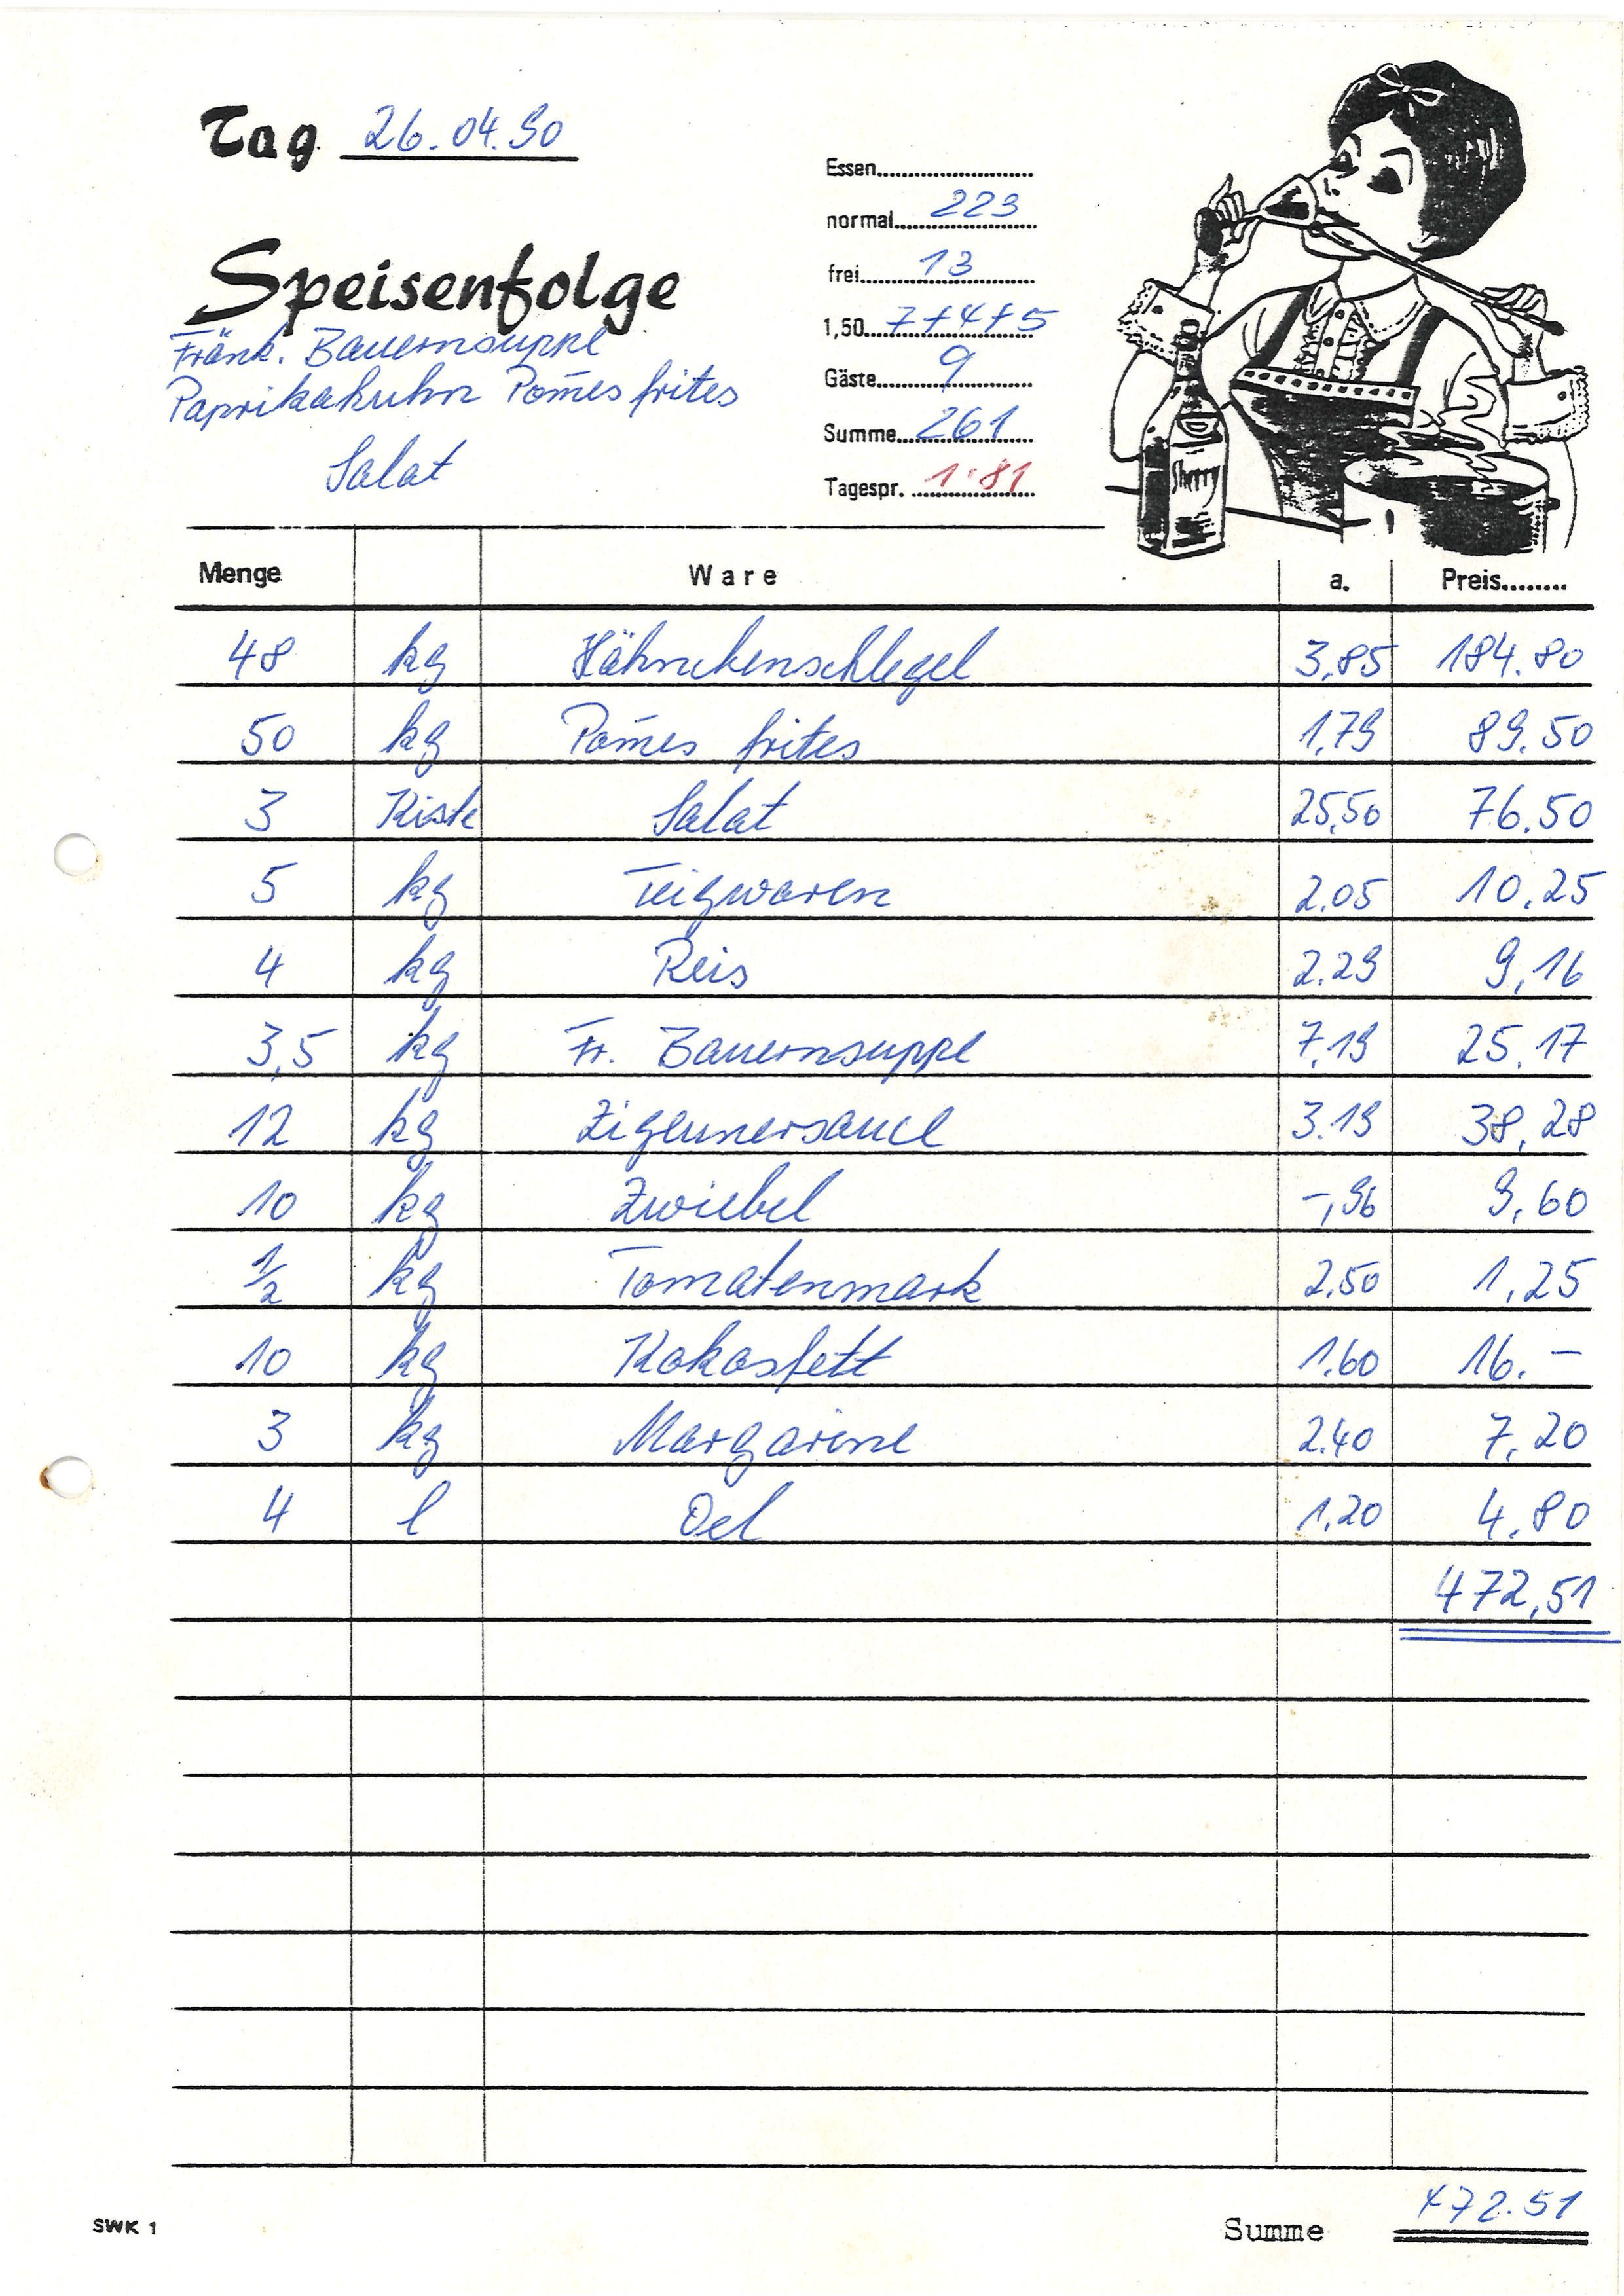 Tag 26.04.90
Essen
normal 223
Speisenfolge
frei 13
Fränk. Bauernsuppe
1,50 7+4+5
Paprikahuhn Pom̄es frites
Gäste 9
Salat
Summe 261
Tagespr. 1.81
Sherry
Menge Ware a. Preis
48 kg Hähnchenschlegel 3,85 184.80
50 kg Pom̄es frites 1,79 89.50
3 Kiste Salat 25,50 76.50
5 kg Teigwaren 2.05 10.25
4 kg Reis 2.29 9,16
3,5 kg Fr. Bauernsuppe 7,19 25.17
12 kg Zigeunersauce 3.19 38,28
10 kg Zwiebel -,96 9,60
1/2 kg Tomatenmark 2.50 1,25
10 kg Kokosfett 1.60 16.-
3 kg Margarine 2.40 7,20
4 l Oel 1,20 4.80
472,51
SWK 1 Summe 472.51